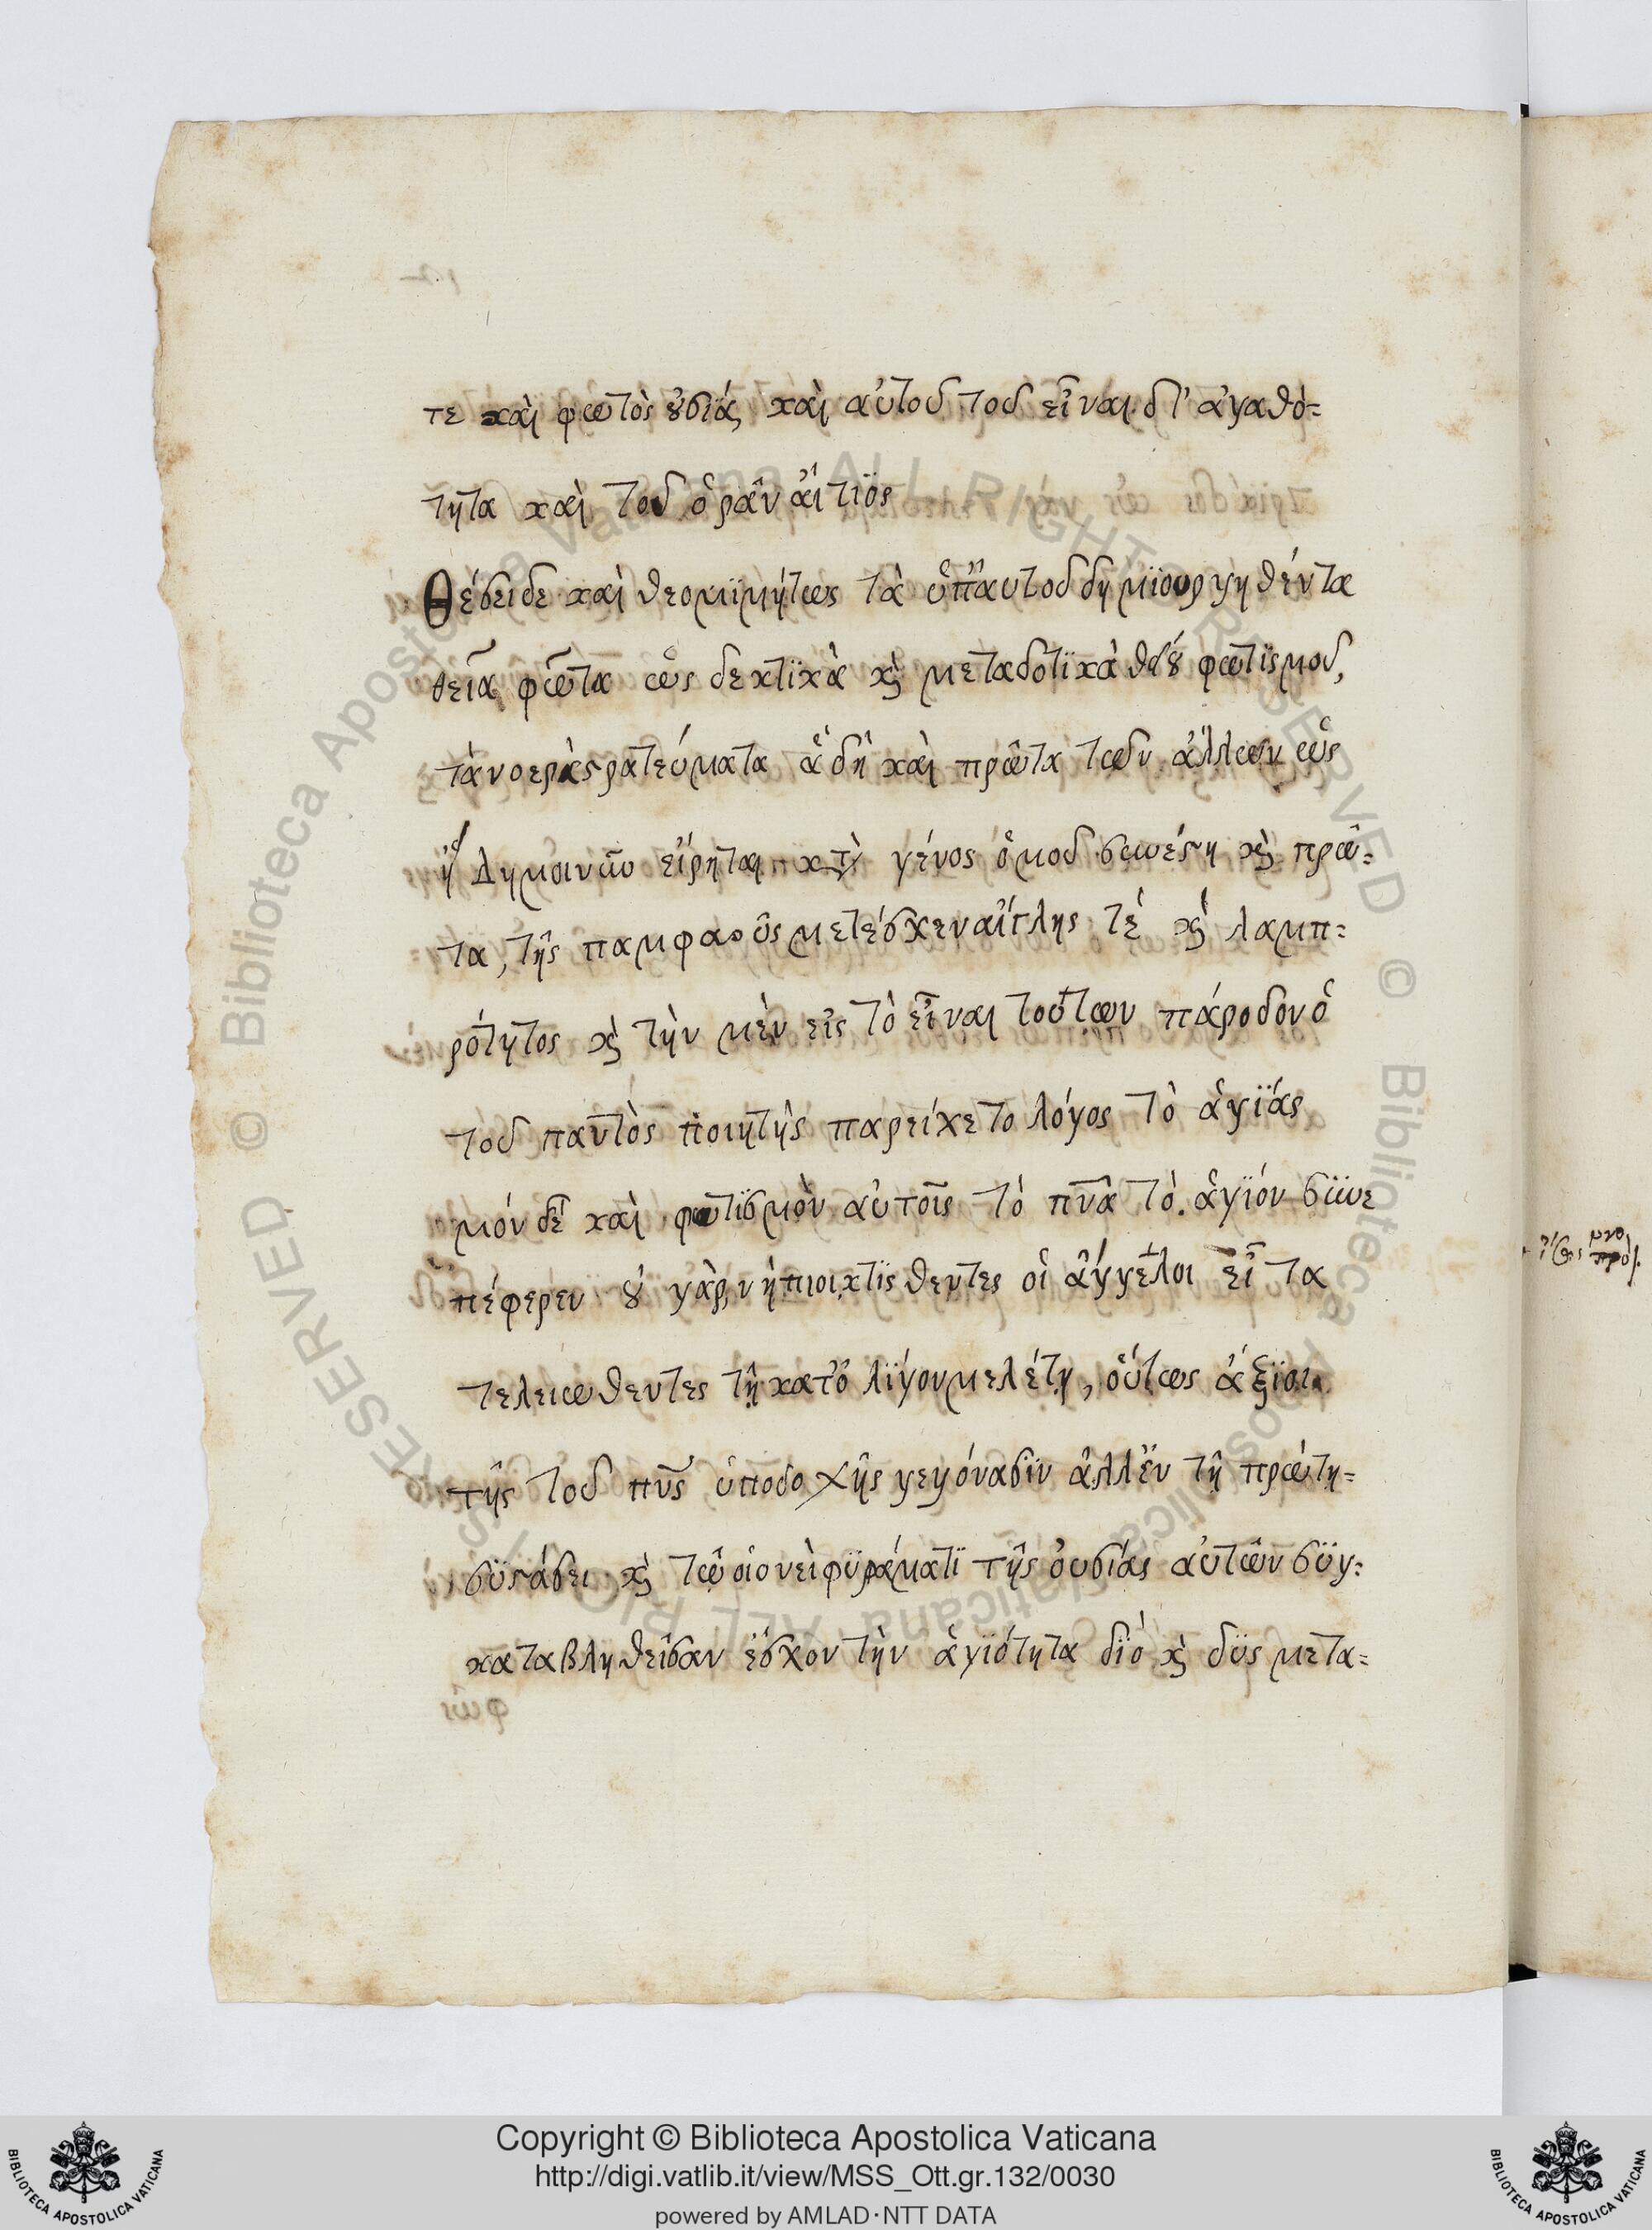 τε καὶ φωτὸς ȣ̓σίας καὶ αὐτοῦ τοῦ εἶναι δι' ἀγαθό=
τητα καὶ τοῦ ὁρᾶν αἴτϊος
Θέσει δε καὶ θεομϊμήτως τὰ ὑπ'αυτοῦ δημϊουργηθέντα
θεῖα φῶτα ὡς δεκτϊκὰ κὶ μεταδοτϊκὰ θείȣ φωτϊσμοῦ,
τὰ νοερὰ ςρατεύματα ἃ δὴ καὶ πρῶτα τῶν ἄλλων ὡς
εἴρηται κτ γένος ὁμοῦ συνέςη κὶ πρῶ=
τα, τῆς παμφαοῦς μετέσχεν αἴγλης τέ κὶ λαμπ=
ρότητος κὶ τὴν μὲν εἰς τὸ εἶναι τούτων πάροδον ὁ
τοῦ παντὸς ποιητὴς παρείχετο λόγος τὸ ἁγϊάς
μόν δὲ καὶ φωτϊσμὸν αὐτοῖς τὸ πνᾶ τὸ ἅγϊόν συνε
πέφερεν ȣ̓ γὰρ νήπιοι κτϊςθεντες οἱ ἄγγελοι εἶ τα
τελειωθεντες τῇ κατ'ὀλϊγον μελέτῃ, οὕτως ἄξϊοι
τῆς τοῦ πνς ὑποδοχῆς γεγόνασϊν ἀλλ'ἐν τῇ πρώτη=
συςάσει κὶ τῷ οἱονεὶ φϋράματϊ τῆς οὐσίας αὐτῶν σϋγ=
καταβληθεῖσαν ἔσχον τὴν ἁγϊότητα δϊό κὶ δϋς μετα=
Copyright © Biblioteca Apostolica Vaticana
http://digi.vatlib.it/view/MSS_Ott.gr.132/0030
powered by AMLAD·NTT DATA